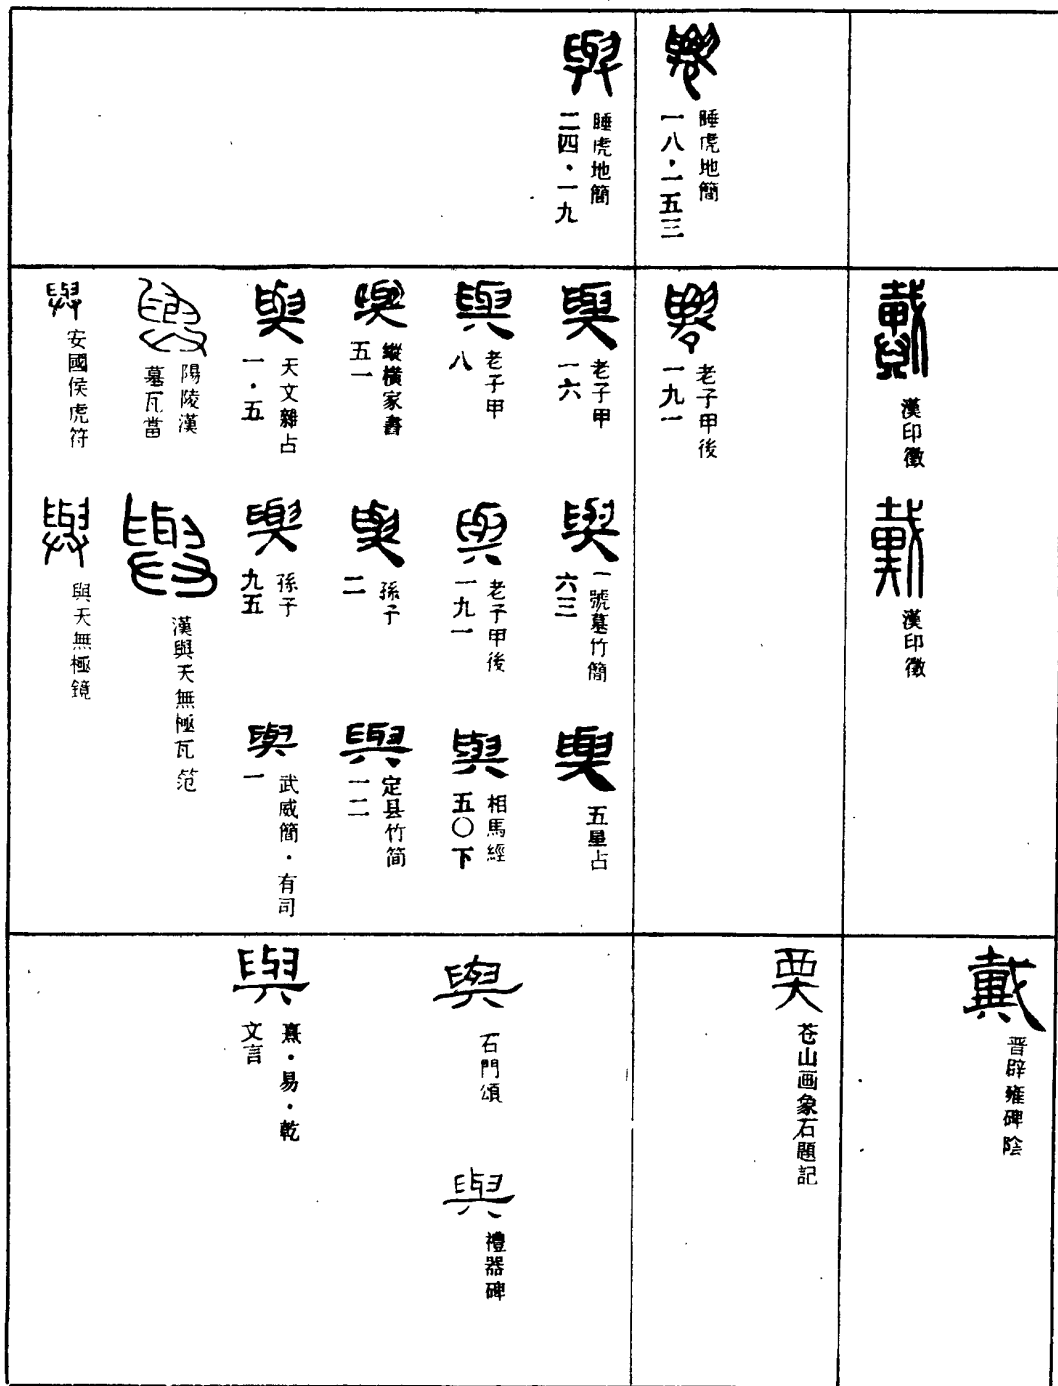 睡虎地簡
一八·一五三
與
睡虎地簡
二四·一九
戴
漢印徵
戴
漢印徵
老子甲後
一九一
與
老子甲
一六
與
一號墓竹簡
六三
與
五星占
與
老子甲
八
與
老子甲後
一九一
與
相馬經
五〇下
與
縱橫家書
五一
與
孫子
二
與
定县竹简
一二
與
天文雜占
一·五
與
孫子
九五
與
武威簡·有司
一
與
陽陵漢
墓瓦當
與
漢與天無極瓦笵
與
安國侯虎符
與
與天無極鏡
戴
晋辟雍碑陰
苍山画象石題記
與
石門頌
與
禮器碑
與
熹·易·乾
文言